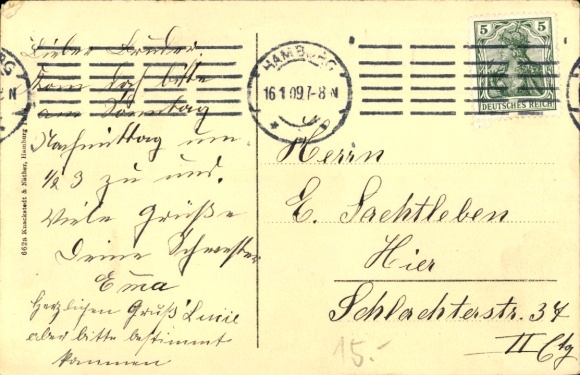 Lieber Bruder.
Kom doch bitte
am Sonntag
Nachmittag um
1/2 3 zu uns.
Viele Grüße
Deine Schwester
Ema
Herzlichen Gruß Lucie
aber bitte bestimmt
kommen
662a Knackstedt & Näther, Hamburg
HAMBURG
16.1.09.7-8N
5 5
DEUTSCHES REICH
Herrn
E. Sachtleben
Hier
Schlachterstr. 34
II Etg
15.-